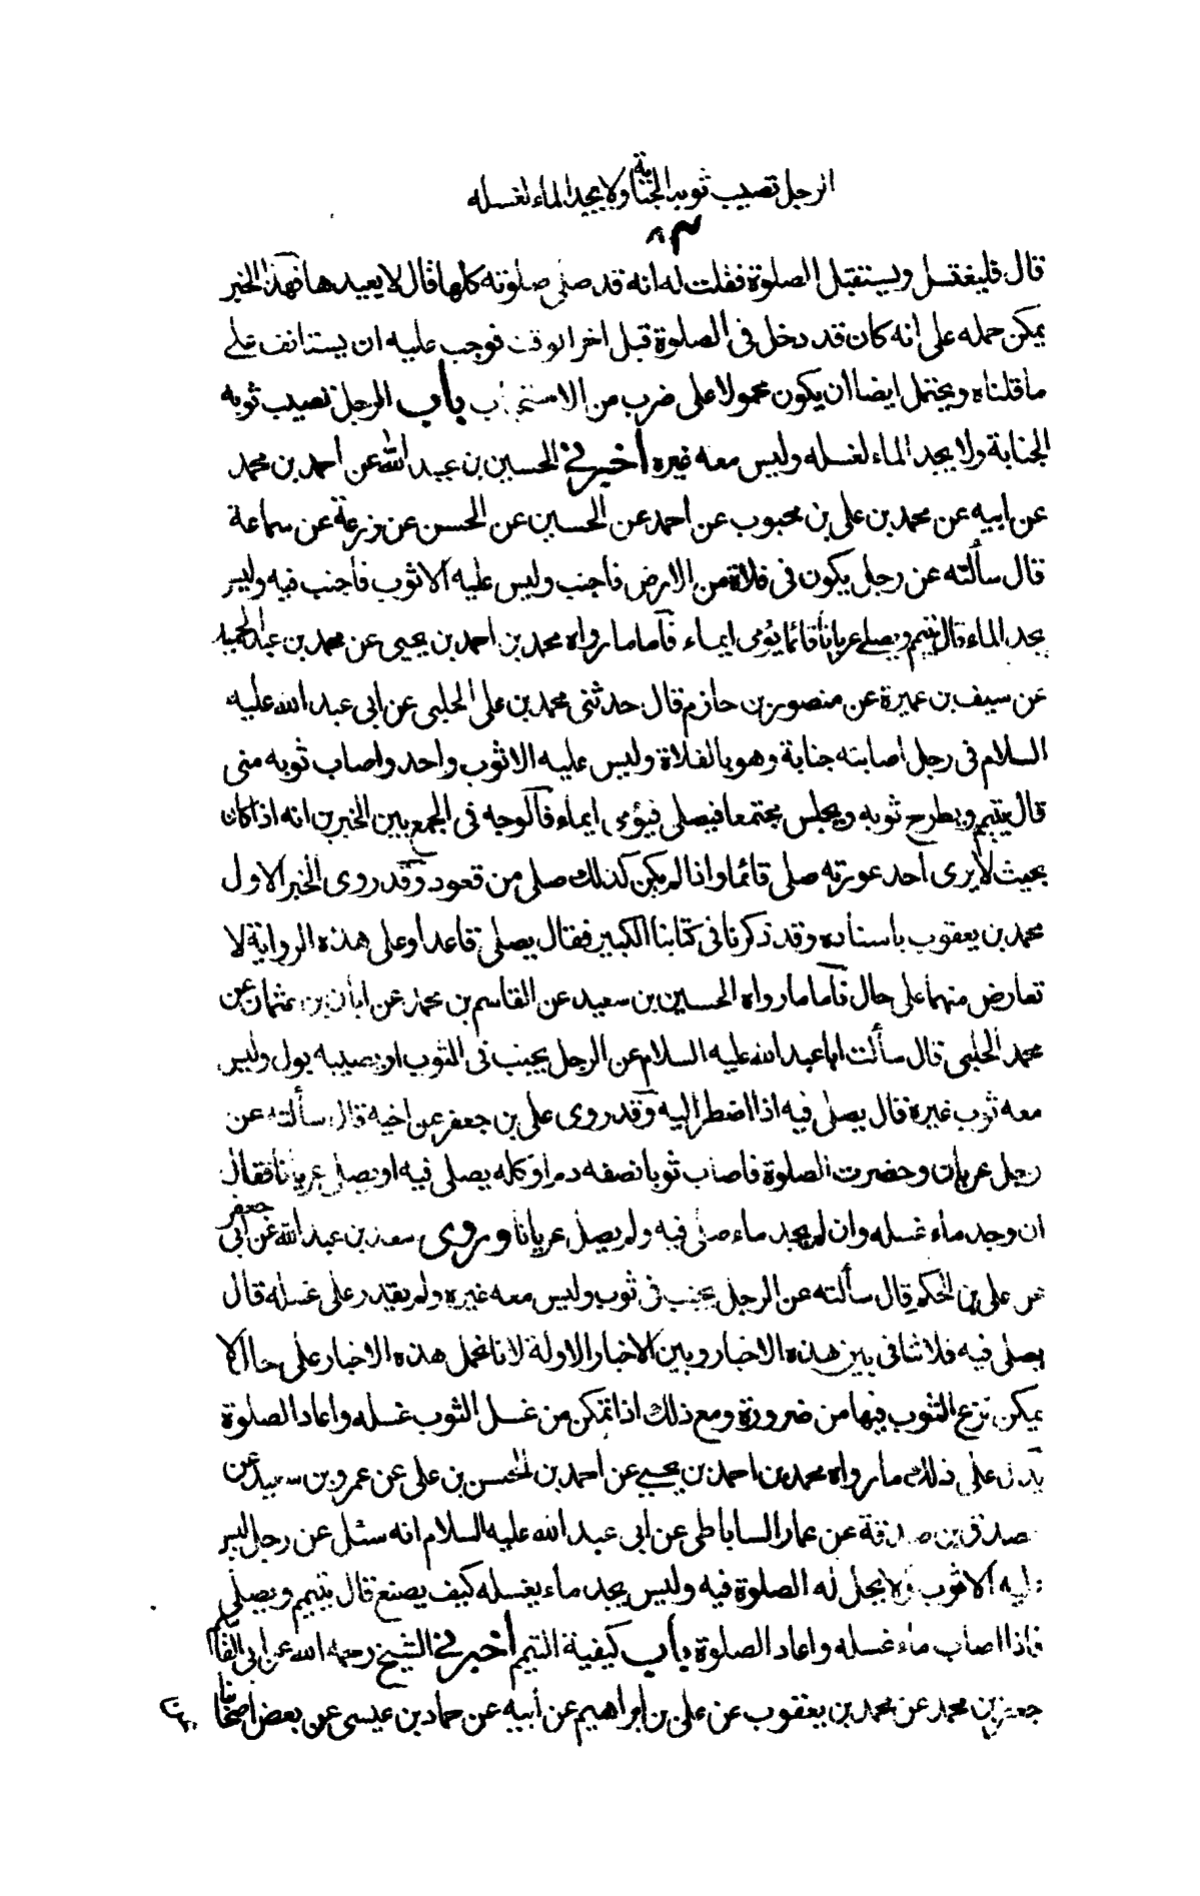 الرجل تصيب ثوبه الجنابة ولا يجد الماء لغسله
٨٣
قال فليغتسل ويستقبل الصلوة فقلت له انه قد صلى صلوته كلها قال لا يعيدها فهذا الخبر
يمكن حمله على انه كان قد دخل فى الصلوة قبل اخر الوقت فوجب عليه ان يستانف على
ما قلناه ويحتمل ايضا ان يكون محمولا على ضرب من الاستحباب باب الرجل تصيب ثوبه
الجنابة ولا يجد الماء لغسله وليس معه غيره أخبرني الحسين بن عبد الله عن احمد بن محمد
عن ابيه عن محمد بن على بن محبوب عن احمد عن الحسين عن الحسن عن زرعة عن سماعة
قال سألته عن رجل يكون فى فلاة من الارض فاجنب وليس عليه الا ثوب فأجنب فيه وليس
يجد الماء قال يتيمم ويصلى عريانا قائما يؤمى ايماء فأما ما رواه محمد بن احمد بن يحيى عن محمد بن عبد الحميد
عن سيف بن عميرة عن منصور بن حازم قال حدثنى محمد بن على الحلبى عن ابى عبد الله عليه
السلام فى رجل اصابته جنابة وهو بالفلاة وليس عليه الا ثوب واحد واصاب ثوبه منى
قال يتيمم ويطرح ثوبه ويجلس مجتمعا فيصلى فيؤمى ايماء فالوجه فى الجمع بين الخبرين انه اذا كان
بحيث لا يرى أحد عورته صلى قائما واذا لم يكن كذلك صلى من قعود وقد روى الخبر الاول
محمد بن يعقوب باسناده وقد ذكرنا فى كتابنا الكبير فقال يصلى قاعدا وعلى هذه الرواية لا
تعارض منهما على حال فأما ما رواه الحسين بن سعيد عن القاسم بن محمد عن ابان بن عثمان عن
محمد الحلبى قال سألت ابا عبد الله عليه السلام عن الرجل يجنب فى الثوب او يصيبه بول وليس
معه ثوب غيره قال يصلى فيه اذا اضطر اليه وقد روى على بن جعفر عن اخيه قال سألته عن
رجل عريان وحضرت الصلوة فاصاب ثوبا نصفه دم او كله يصلى فيه او يصلى عريانا فقال
ان وجد ماء غسله وان لم يجد ماء صلى فيه ولم يصل عريانا وروى سعد بن عبد الله عن ابى جعفر
عن على بن الحكم قال سألته عن الرجل يجنب فى ثوب وليس معه غيره ولم يقدر على غسله قال
يصلى فيه فلا تنافى بين هذه الاخبار وبين الاخبار الاولة لانا نحمل هذه الاخبار على حال لا
يمكن نزع الثوب فيها من ضرورة ومع ذلك اذا تمكن من غسل الثوب غسله واعاد الصلوة
يدل على ذلك ما رواه محمد بن احمد بن يحيى عن احمد بن الحسن بن على عن عمرو بن سعيد عن
مصدق بن صدقة عن عمار الساباطى عن ابى عبد الله عليه السلام انه سئل عن رجل ليس
عليه الا ثوب ولا يحل له الصلوة فيه وليس يجد ماء يغسله كيف يصنع قال يتيمم ويصلى
فاذا اصاب ماء غسله واعاد الصلوة باب كيفية التيمم أخبرني الشيخ رحمه الله عن ابى القاسم
جعفر بن محمد عن محمد بن يعقوب عن على بن ابراهيم عن أبيه عن حماد بن عيسى عن بعض اصحابنا